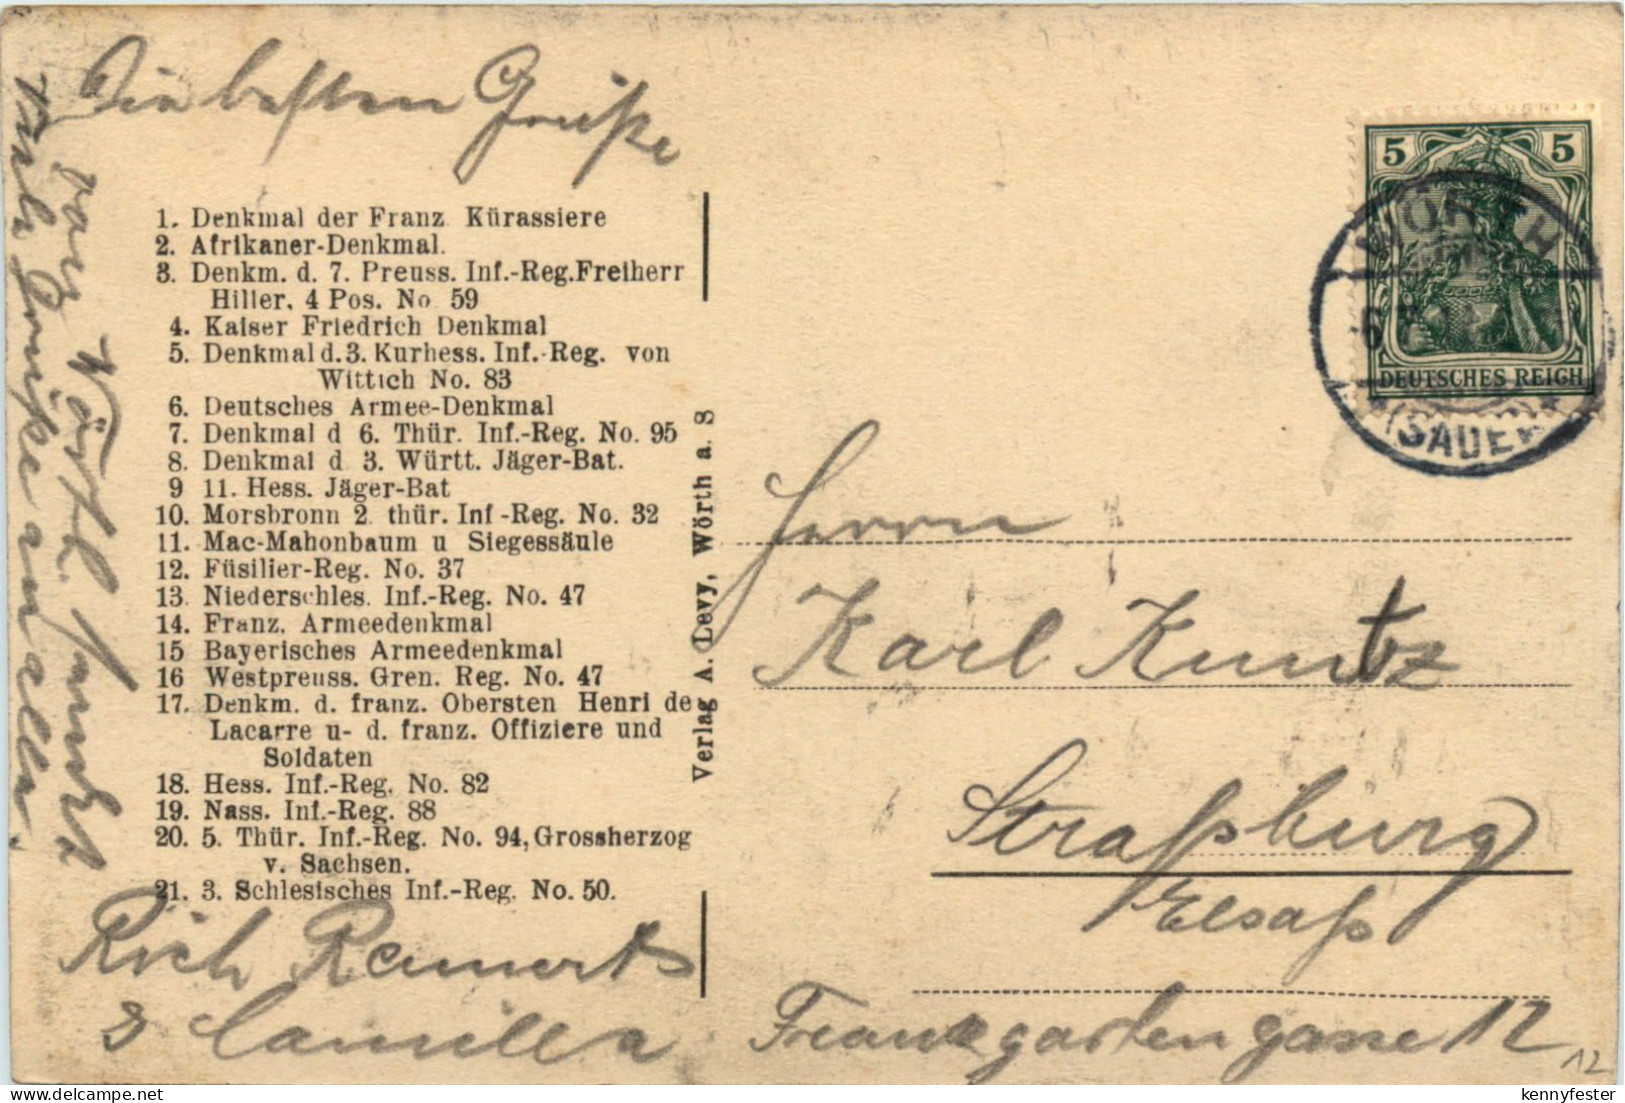 Die besten Grüße
von Wörth. sendet
Viele Grüße an alle.
1. Denkmal der Franz. Kürassiere
2. Afrikaner-Denkmal.
3. Denkm. d. 7. Preuss. Inf.-Reg. Freiherr
Hiller, 4 Pos. No. 59
4. Kaiser Friedrich Denkmal
5. Denkmal d. 3. Kurhess. Inf.-Reg. von
Wittich No. 83
6. Deutsches Armee-Denkmal
7. Denkmal d 6. Thür. Inf.-Reg. No. 95
8. Denkmal d. 3. Württ. Jäger-Bat.
9 11. Hess. Jäger-Bat
10. Morsbronn 2. thür. Inf-Reg. No. 32
11. Mac-Mahonbaum u Siegessäule
12. Füsilier-Reg. No. 37
13. Niederschles. Inf.-Reg. No. 47
14. Franz. Armeedenkmal
15 Bayerisches Armeedenkmal
16 Westpreuss. Gren. Reg. No. 47
17. Denkm. d. franz. Obersten Henri de
Lacarre u- d. franz. Offiziere und
Soldaten
18. Hess. Inf.-Reg. No. 82
19. Nass. Inf.-Reg. 88
20. 5. Thür. Inf.-Reg. No. 94, Grossherzog
v. Sachsen.
21. 3. Schlesisches Inf.-Reg. No. 50.
Rich
& Camilla
Verlag A. Levy, Wörth a. S
5 5
DEUTSCHES REICH
WÖRTH
(SAUER)
Herrn
Karl Kuntz
Straßburg
Elsaß
Frankgartengasse 12
12
kennyfester